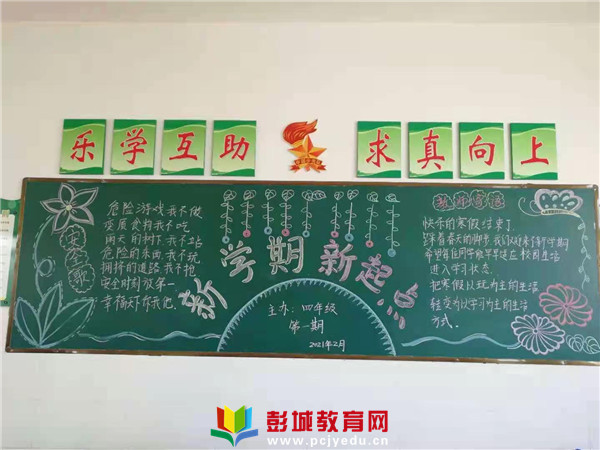 乐学互助
求真向上
安全歌
危险游戏我不做
变质食物我不吃
雨天的树下我不站
危险的东西我不玩
拥挤的道路我不抢
安全时刻放第一
幸福天天伴我他
新学期新起点
主办：四年级
第一期
2021年2月
新期寄语
快乐的寒假结束了
踩着春天的脚步我们又迎来了新学期
希望每位同学能早早适应校园生活
进入学习状态
把寒假以玩为主的生活
转变为以学习为主的生活
方式.
彭城教育网
www.pcjyedu.cn